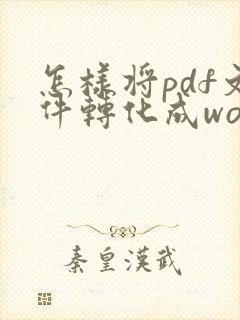 怎樣將pdf文
件轉化成wo
秦皇漢武